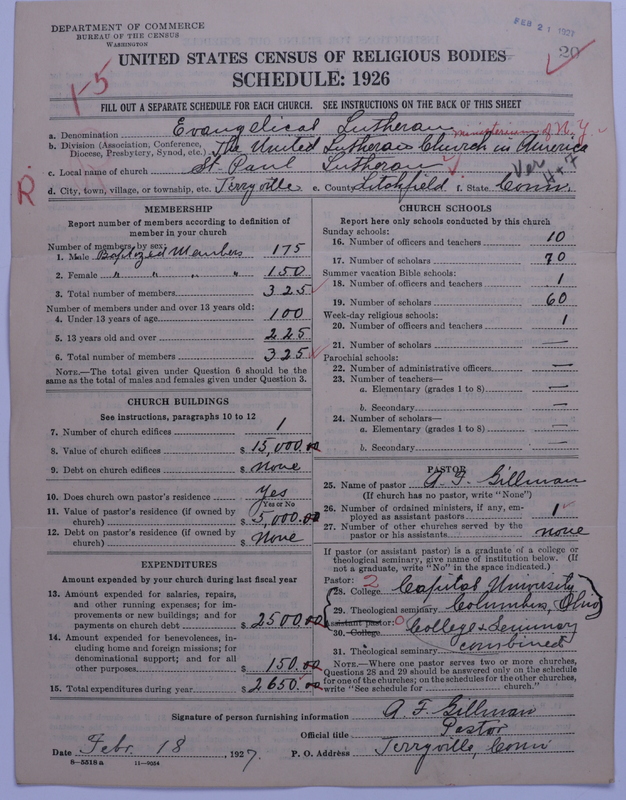 DEPARTMENT OF COMMERCE
BUREAU OF THE CENSUS
WASHINGTON
FEB 21 1927
20
UNITED STATES CENSUS OF RELIGIOUS BODIES
SCHEDULE: 1926
1-5
FILL OUT A SEPARATE SCHEDULE FOR EACH CHURCH. SEE INSTRUCTIONS ON THE BACK OF THIS SHEET
a. Denomination Evangelical Lutheran ministerium of N.Y.
b. Division (Association, Conference, Diocese, Presbytery, Synod, etc.) The United Lutheran Church in America
c. Local name of church St. Paul Lutheran
Ver
4+7
R
d. City, town, village, or township, etc. Terryville e. County Litchfield f. State Conn.
MEMBERSHIP
Report number of members according to definition of member in your church
Number of members by sex:
1. Male Baptized Members 175
2. Female " " " " 150
3. Total number of members 325
Number of members under and over 13 years old:
4. Under 13 years of age 100
5. 13 years old and over 225
6. Total number of members 325
NOTE.—The total given under Question 6 should be the same as the total of males and females given under Question 3.
CHURCH BUILDINGS
See instructions, paragraphs 10 to 12
7. Number of church edifices 1
8. Value of church edifices $ 15,000.00
9. Debt on church edifices $ none
10. Does church own pastor's residence Yes
Yes or No
11. Value of pastor's residence (if owned by church) $ 5,000.00
12. Debt on pastor's residence (if owned by church) $ None
EXPENDITURES
Amount expended by your church during last fiscal year
13. Amount expended for salaries, repairs, and other running expenses; for improvements or new buildings; and for payments on church debt $ 2500.00
14. Amount expended for benevolences, including home and foreign missions; for denominational support; and for all other purposes $ 150.00
15. Total expenditures during year $ 2650.00
CHURCH SCHOOLS
Report here only schools conducted by this church
Sunday schools:
16. Number of officers and teachers 10
17. Number of scholars 70
Summer vacation Bible schools:
18. Number of officers and teachers 1
19. Number of scholars 60
Week-day religious schools:
20. Number of officers and teachers 1
21. Number of scholars —
Parochial schools:
22. Number of administrative officers —
23. Number of teachers—
a. Elementary (grades 1 to 8) —
b. Secondary —
24. Number of scholars—
a. Elementary (grades 1 to 8) —
b. Secondary —
PASTOR
25. Name of pastor A. F. Gillman
(If church has no pastor, write "None")
26. Number of ordained ministers, if any, employed as assistant pastors 1
27. Number of other churches served by the pastor or his assistants none
If pastor (or assistant pastor) is a graduate of a college or theological seminary, give name of institution below. (If not a graduate, write "No" in the space indicated.)
Pastor: 2
28. College Capital University
29. Theological seminary Columbus, Ohio
Assistant pastor: 0
30. College College & Seminary
31. Theological seminary combined
NOTE.—Where one pastor serves two or more churches, Questions 28 and 29 should be answered only on the schedule for one of the churches; on the schedules for the other churches, write "See schedule for church."
Signature of person furnishing information A. F. Gillman
Official title Pastor
Date Febr. 18, 1927. P. O. Address Terryville, Conn
8—5518 a 11—9024